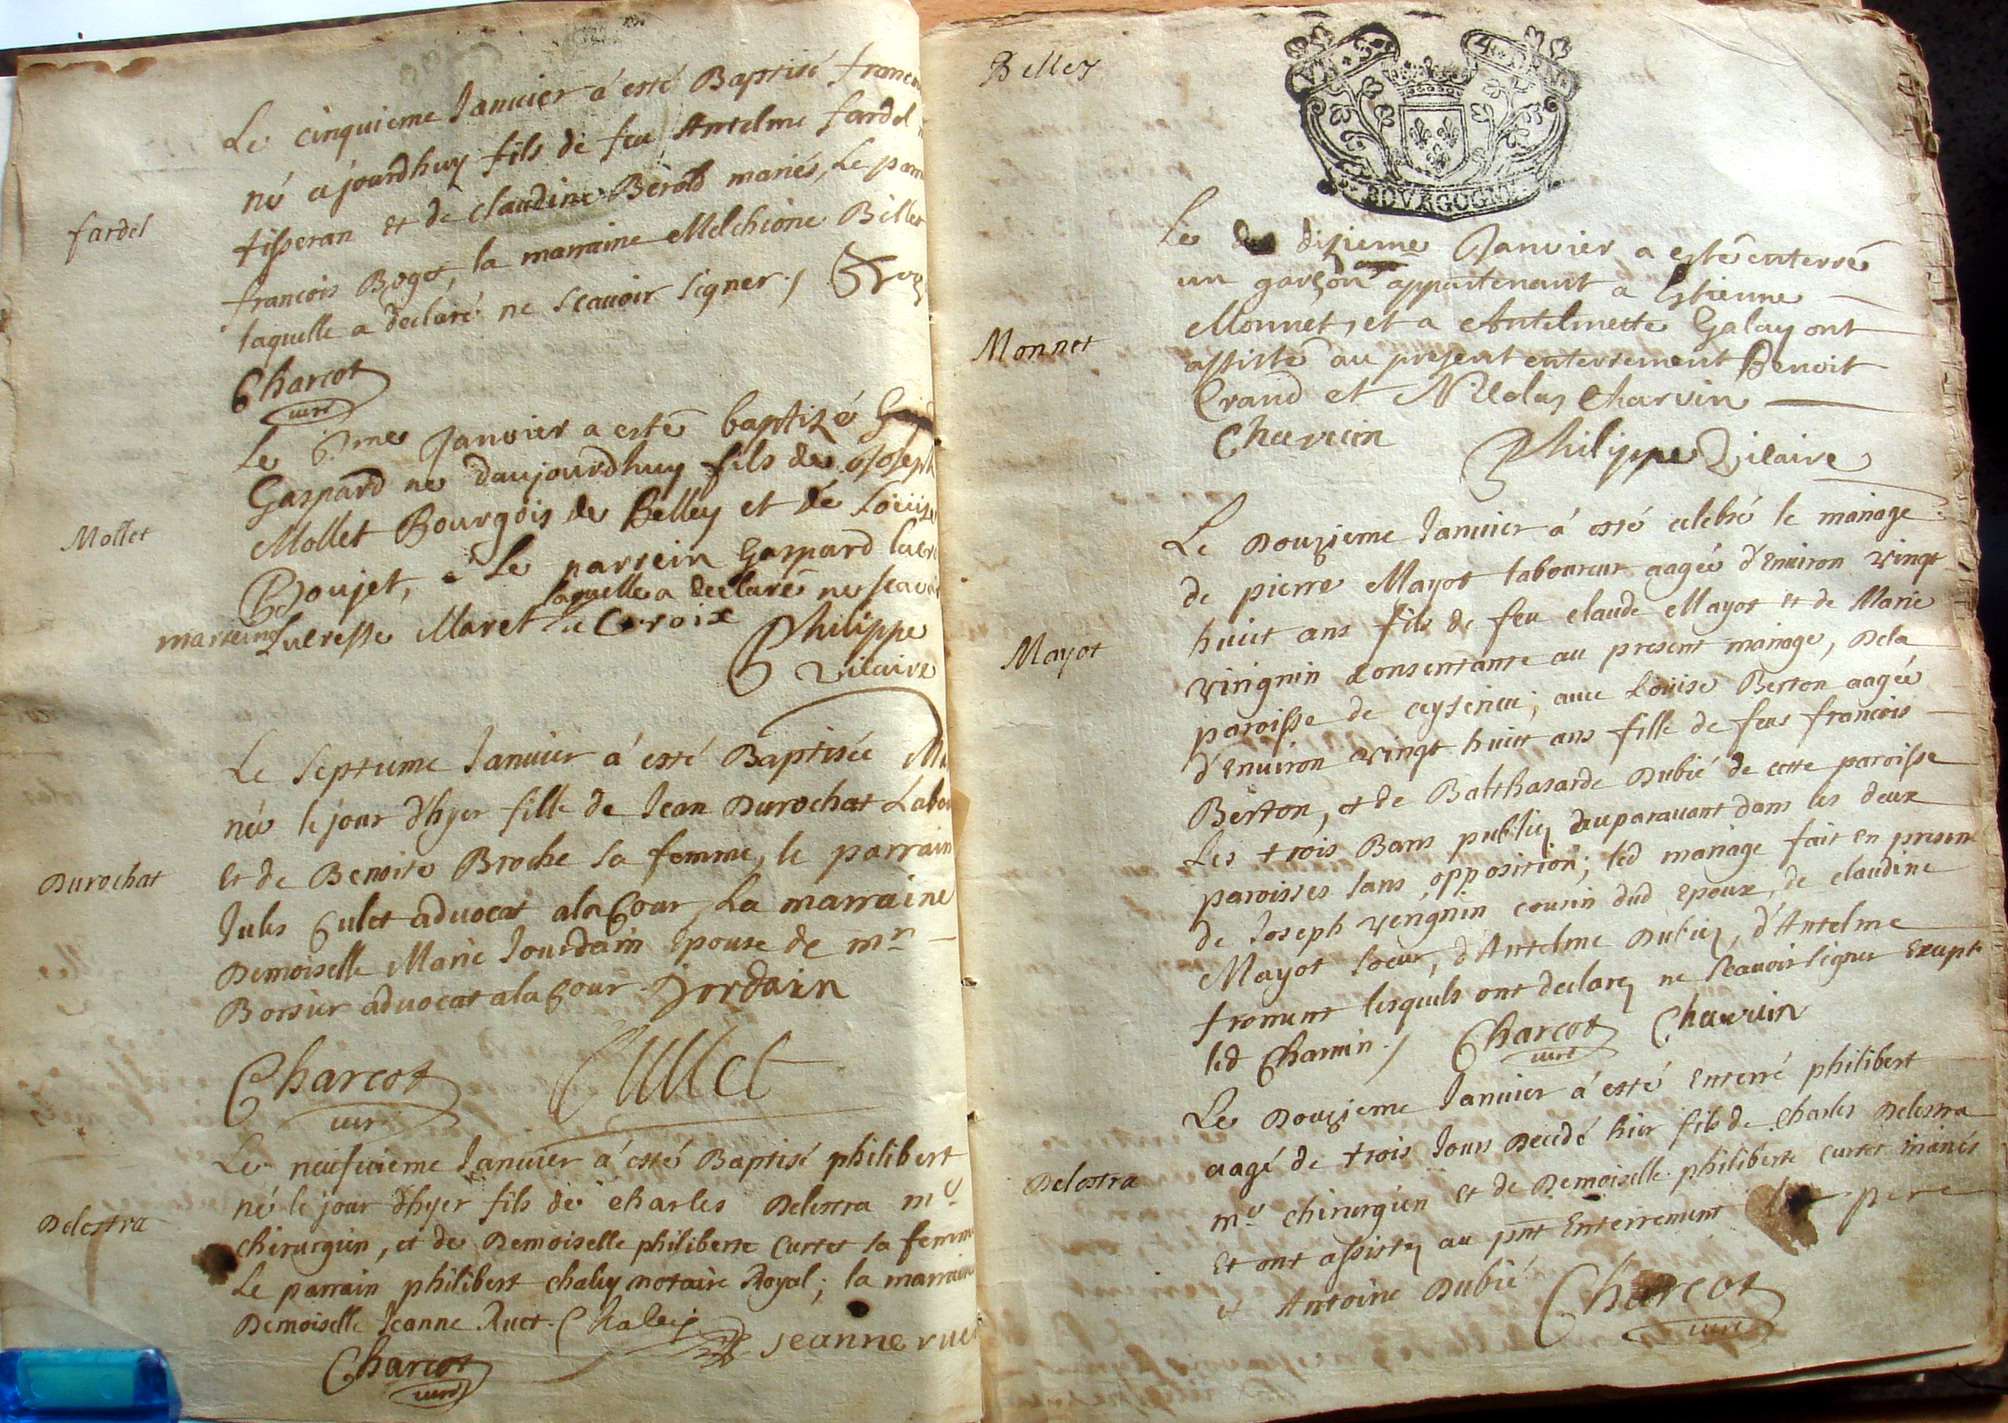 Le cinquieme Januier á esté Baptisé
né ajourdhuy fils de feu Antelme fardel
fardel
tisseran et de claudine Berold mariés, Le
francois Boget, la marraine Melchione
laquelle a declaré ne scauoir signer /
Charcot
uire
Le 6.me Janvier a esté baptizé
Gaspard ne daujourdhuy fils de Joseph
Mollet
Mollet Bourgois de Belley et de Loüize
Boujet, Le parrein Gaspard
laquelle a declaré ne scavoir
marreine Lucresse Maret La Croix
Philippe
Vicaire
Le Septieme Januier á esté Baptisée
née le jour d'hyer fille de Jean Durochat
Durochat
Et de Benoite Broche sa femme, le parrain
Jules Culet advocat ala Cour, La marraine
Demoiselle Marie Jourdain Epouse de mr
Borsier advocat ala Cour. Jordain
Charcot Cullet
uire
Le neufuieme Januier á esté Baptisé philibert
né le jour d'hyer fils de charles Delestra me
Delestra
chirurgien, et de Demoiselle philiberte Curtet sa femme
Le parrain philibert chaley notaire Royal; la marraine
Demoiselle Jeanne Ruet. Chaley jeanne ruet
Charcot
uire
Belley
BOVRGOGNE
Le dizieme Janvier a esté enterré
un garson appartenant a Estienne
Monnet
Monnet, et a Antelmette Galay ont
assisté au present enterrement Benoit
Crand et Nicolas Charvin
Charuin Philippe Vicaire
Le Douzieme Januier á esté celebré le mariage
de pierre Mayot laboureur aagée d'Enuiron vingt
huict ans fils de feu claude Mayot et de Marie
Mayot
vingnin consentante au present mariage, Dela
paroisse de ceyserieu; auec Louise Berton aagée
d'Enuiron vingt huict ans fille de feus francois
Berton, et de Balthasarde Dubié de cette paroisse
Les trois Bans publiez auparauant dans les deux
paroisses sans opposition; led mariage fait en presence
de Joseph vengnin cousin dud Epoux, de claudine
Mayot soeur, d'Antelme Dubiez, d'Antelme
lesquels ont declarez ne scauoir signer Exepté
led Charuin / Charcot Charuin
uire
Le Douzieme Januier á esté Enterré philibert
aagé de trois Jours Decedé hier fils de charles Delestra
Delestra
me chirurgien et de Demoiselle philiberte curtet mariés
Et ont assistez au pnt Enterrement le pere
et Antoine Dubié Charcot
uire